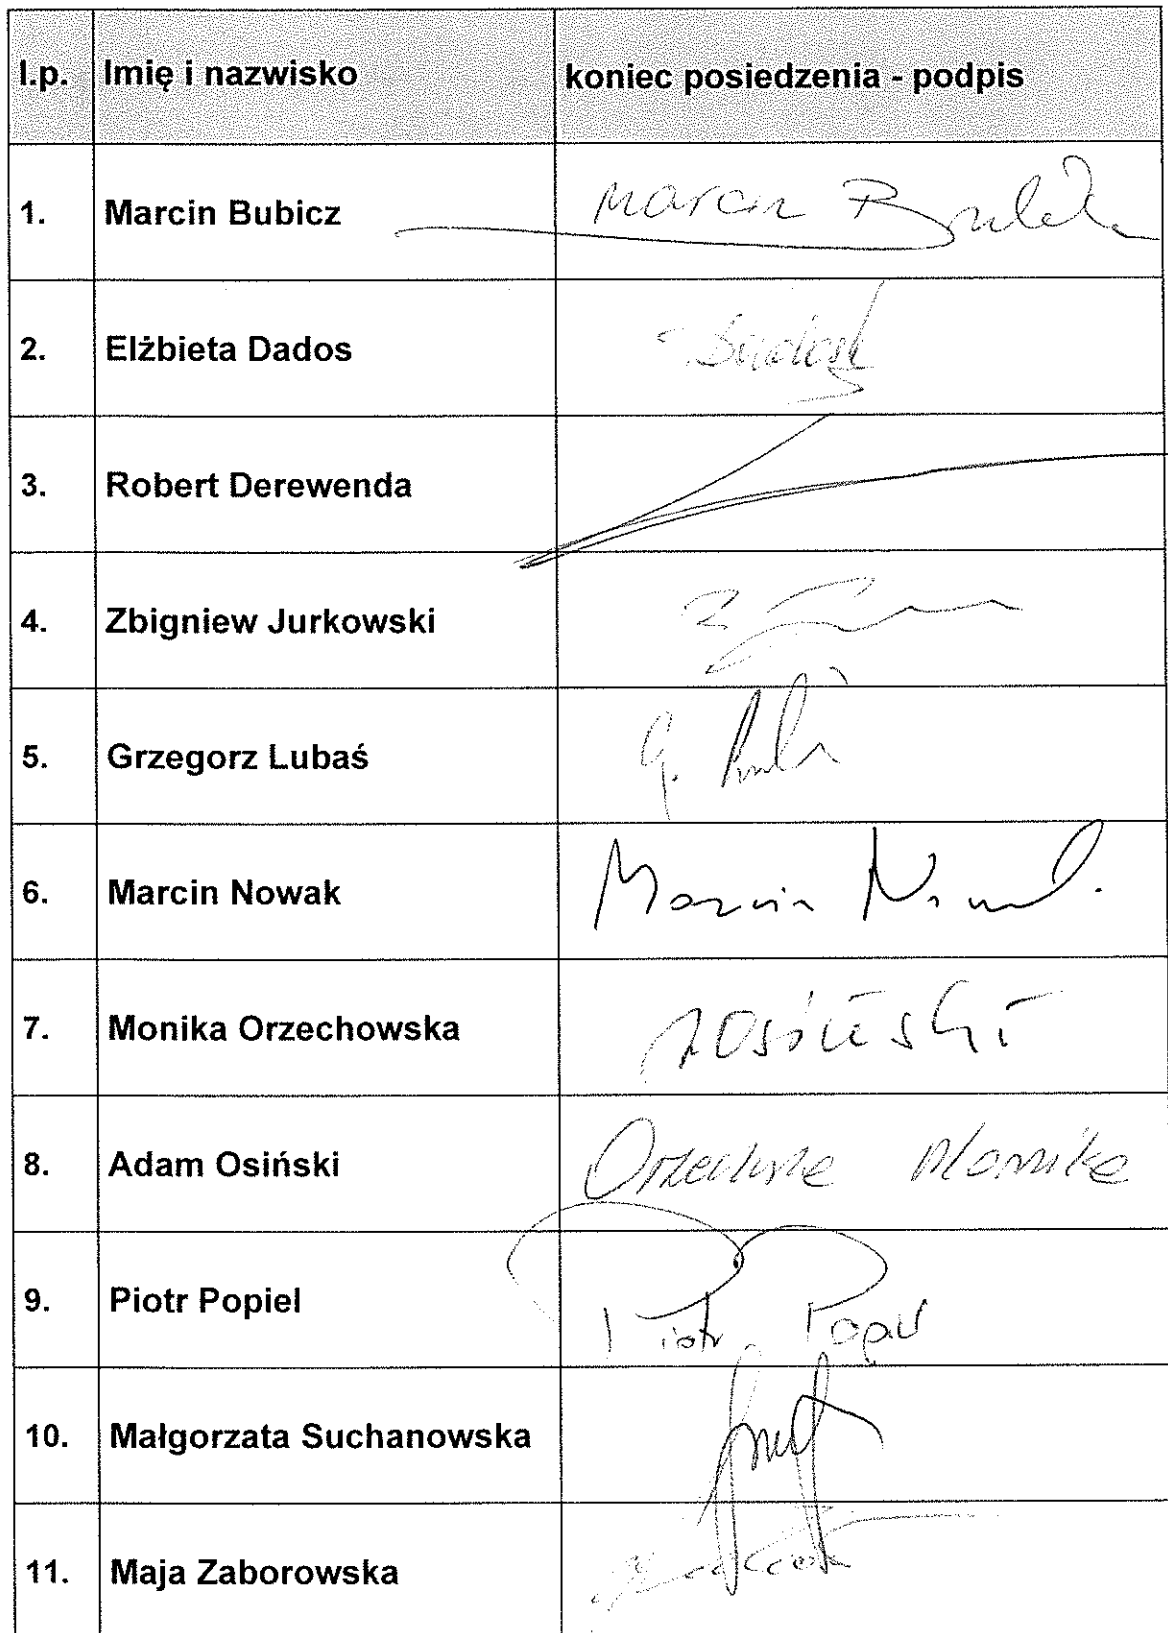 l.p. Imię i nazwisko koniec posiedzenia - podpis
1. Marcin Bubicz Marcin
2. Elżbieta Dados
3. Robert Derewenda
4. Zbigniew Jurkowski
5. Grzegorz Lubaś G.
6. Marcin Nowak Marcin
7. Monika Orzechowska
8. Adam Osiński Monika
9. Piotr Popiel Piotr
10. Małgorzata Suchanowska
11. Maja Zaborowska